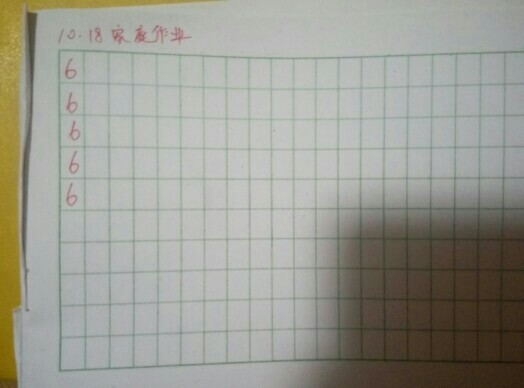 10.18家庭作业
6
6
6
6
6